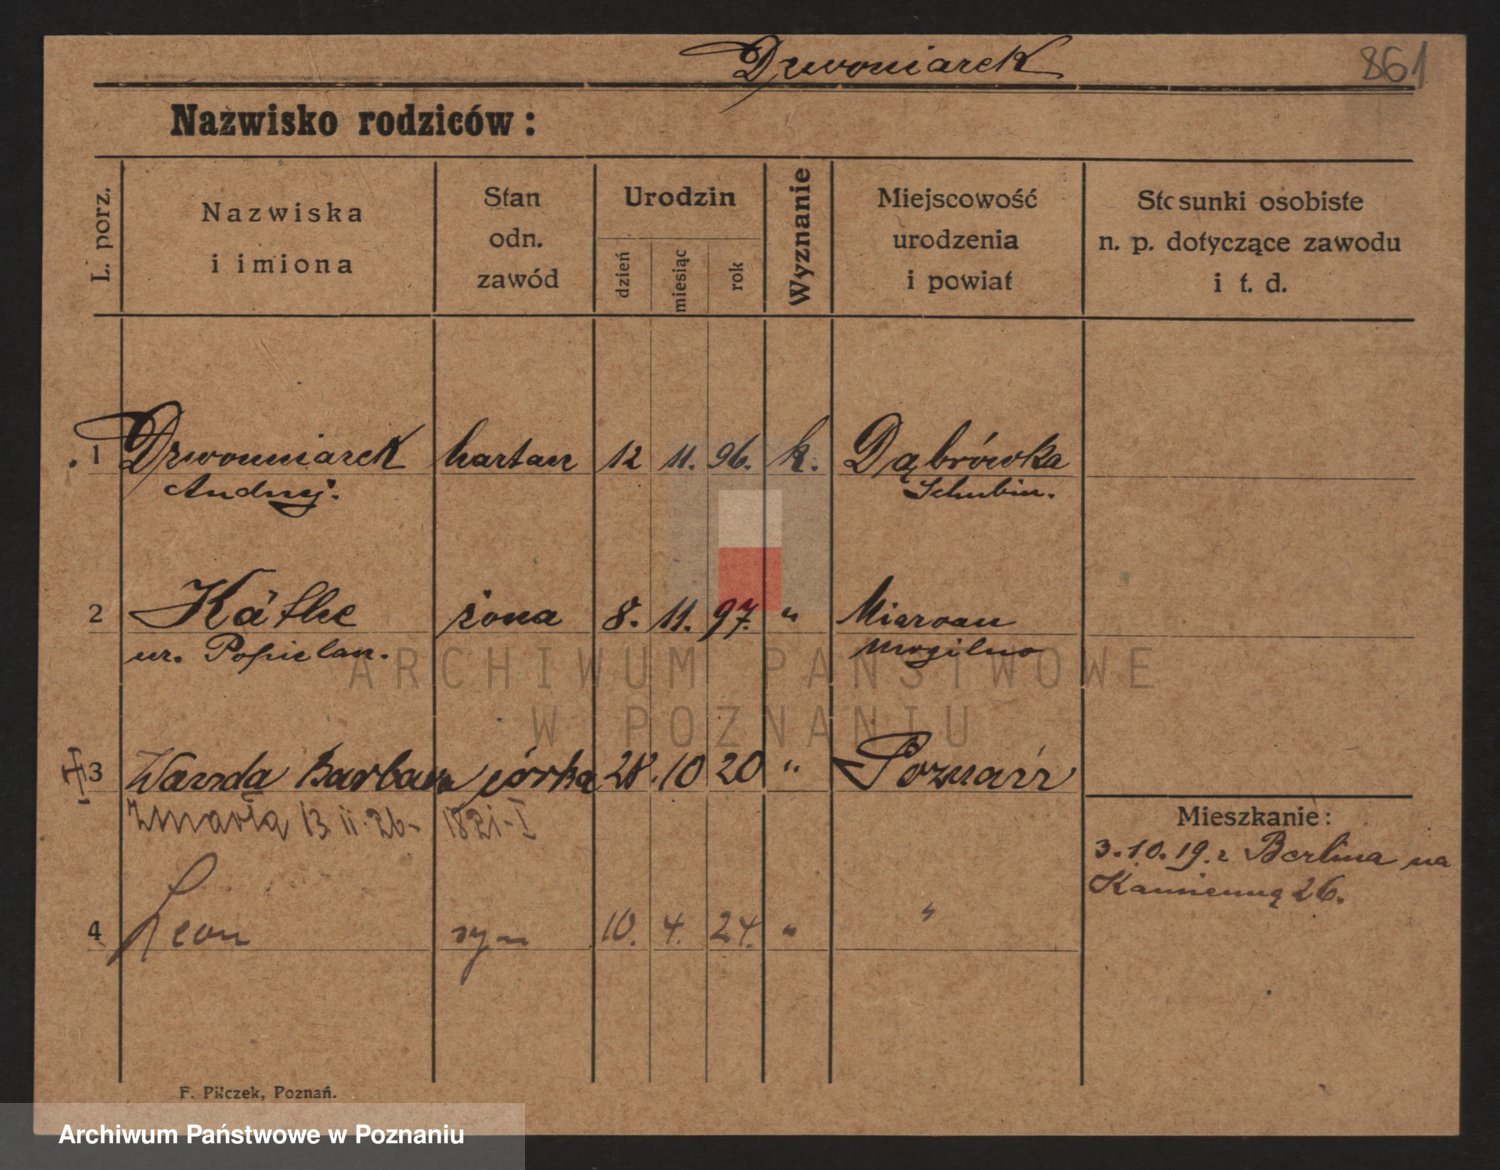 Dzwoniarek 861
Nazwisko rodziców:
L. porz.
Nazwiska
i imiona
Stan
odn.
zawód
Urodzin
dzień
miesiąc
rok
Wyznanie
Miejscowość
urodzenia
i powiat
Stosunki osobiste
n. p. dotyczące zawodu
i t. d.
1 Dzwoniarek 12 11. 96. k. Dąbrówka
Andrzej. Schubin.
2 Käthe żona 8. 11. 97. "
ur. Popielarz. Mogilno
3 Wanda Barbara córka 28. 10 20 " Poznań
Zmarła 13 II. 26 1821-I
4 Leon syn 10. 4. 24. " "
Mieszkanie:
3.10.19. z Berlina na
Kamienną 26.
F. Pilczek, Poznań.
ARCHIWUM PAŃSTWOWE
W POZNANIU
Archiwum Państwowe w Poznaniu